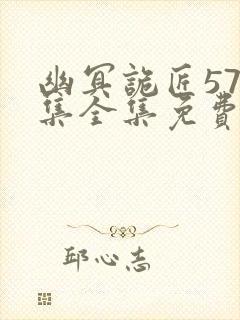 幽冥詭匠57
集全集免費
邱心志